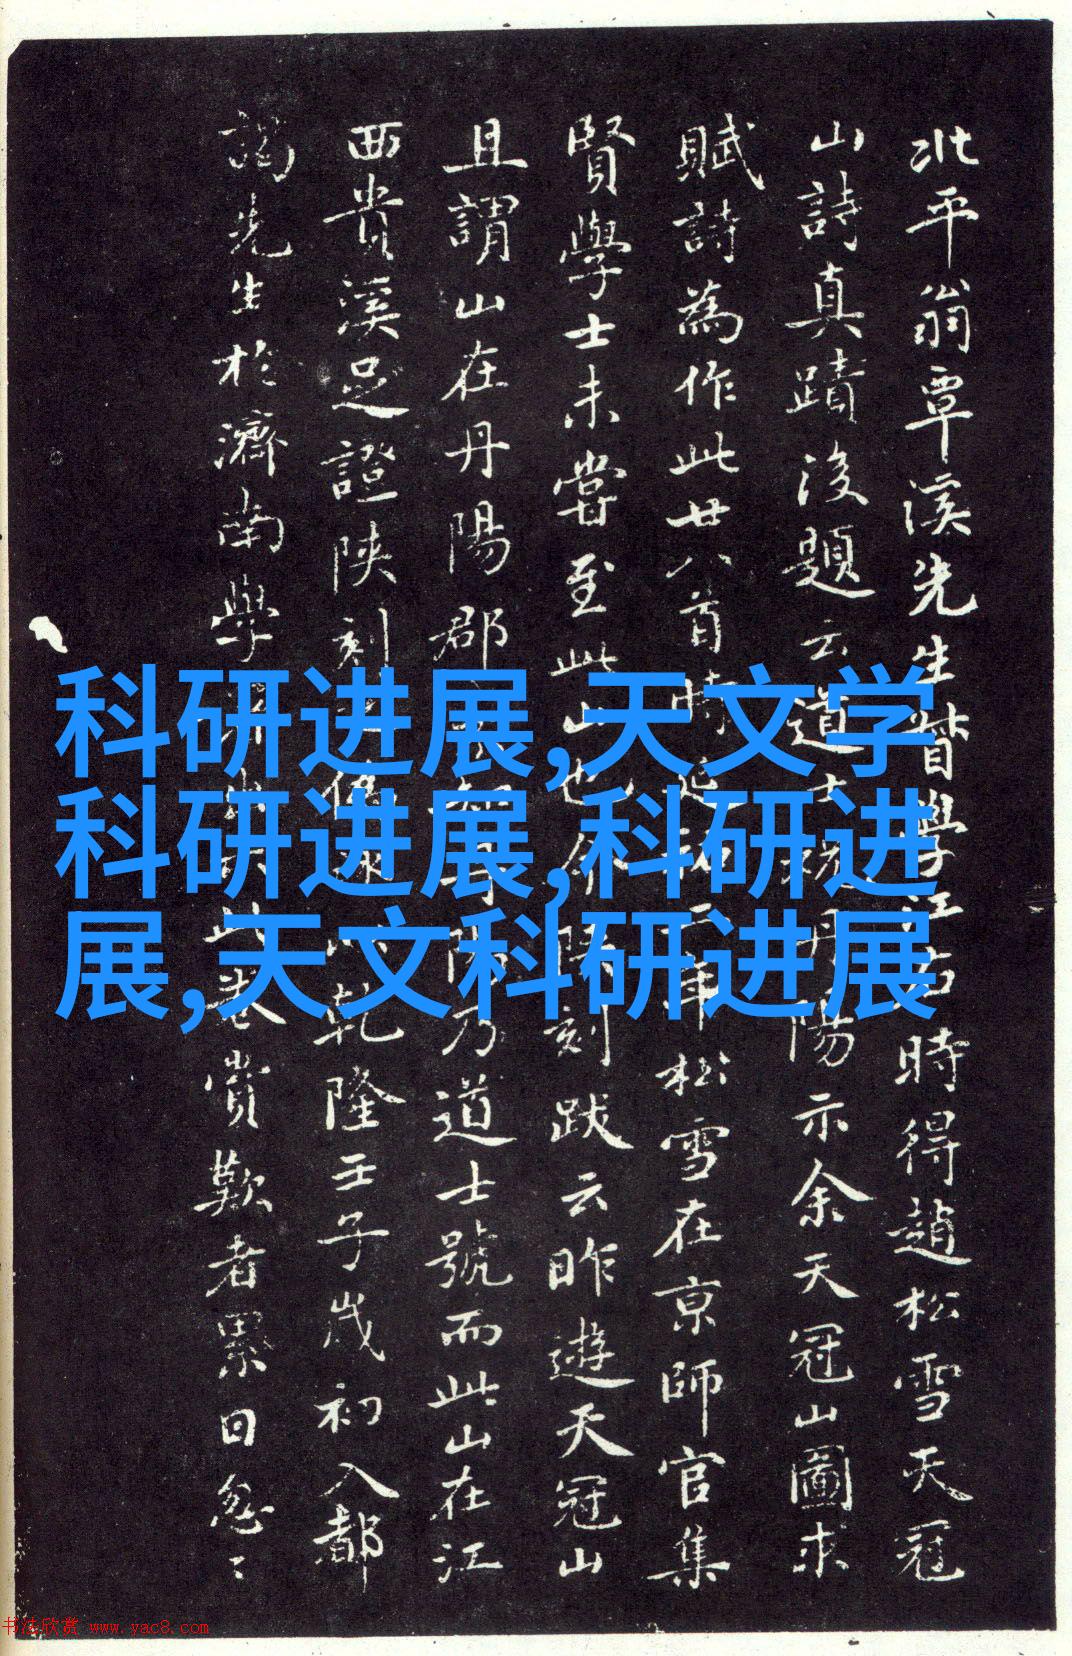 北平翁覃溪先生督學江右時得趙松雪天冠
山詩真蹟後題云道士祝丹陽示余天冠山圖求
賦詩為作此廿八首時延祐二年松雪在京師官集
賢學士未嘗至此山也陝刻跋云昨遊天冠山
且謂山在丹陽郡丹陽乃道士號而此山在江
西貴溪足證陝刻乾隆壬子歲初入都
謁先生於濟南學此卷賞歎者累日忽〻
科研进展,天文学
科研进展,科研进
展,天文科研进展
书法欣赏 www.yac8.com